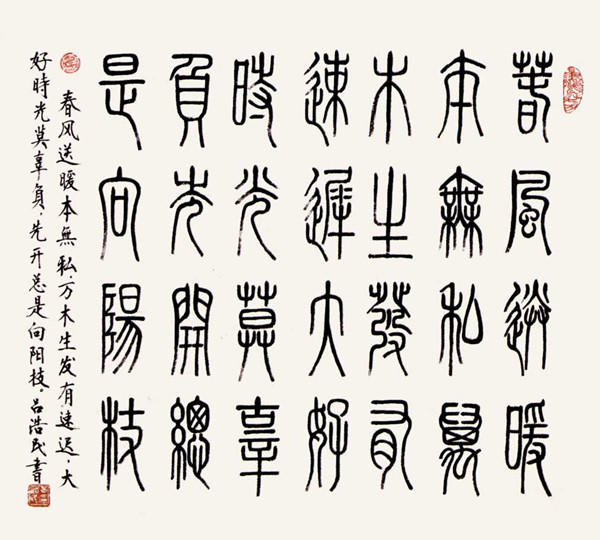 萅風送暖
本無私萬
木生發有
速遲大好
時光莫辜
負先開總
是向陽枝
春风送暖本無私，万木生发有速迟，大
好時光莫辜負，先开总是向阳枝。吕浩民書